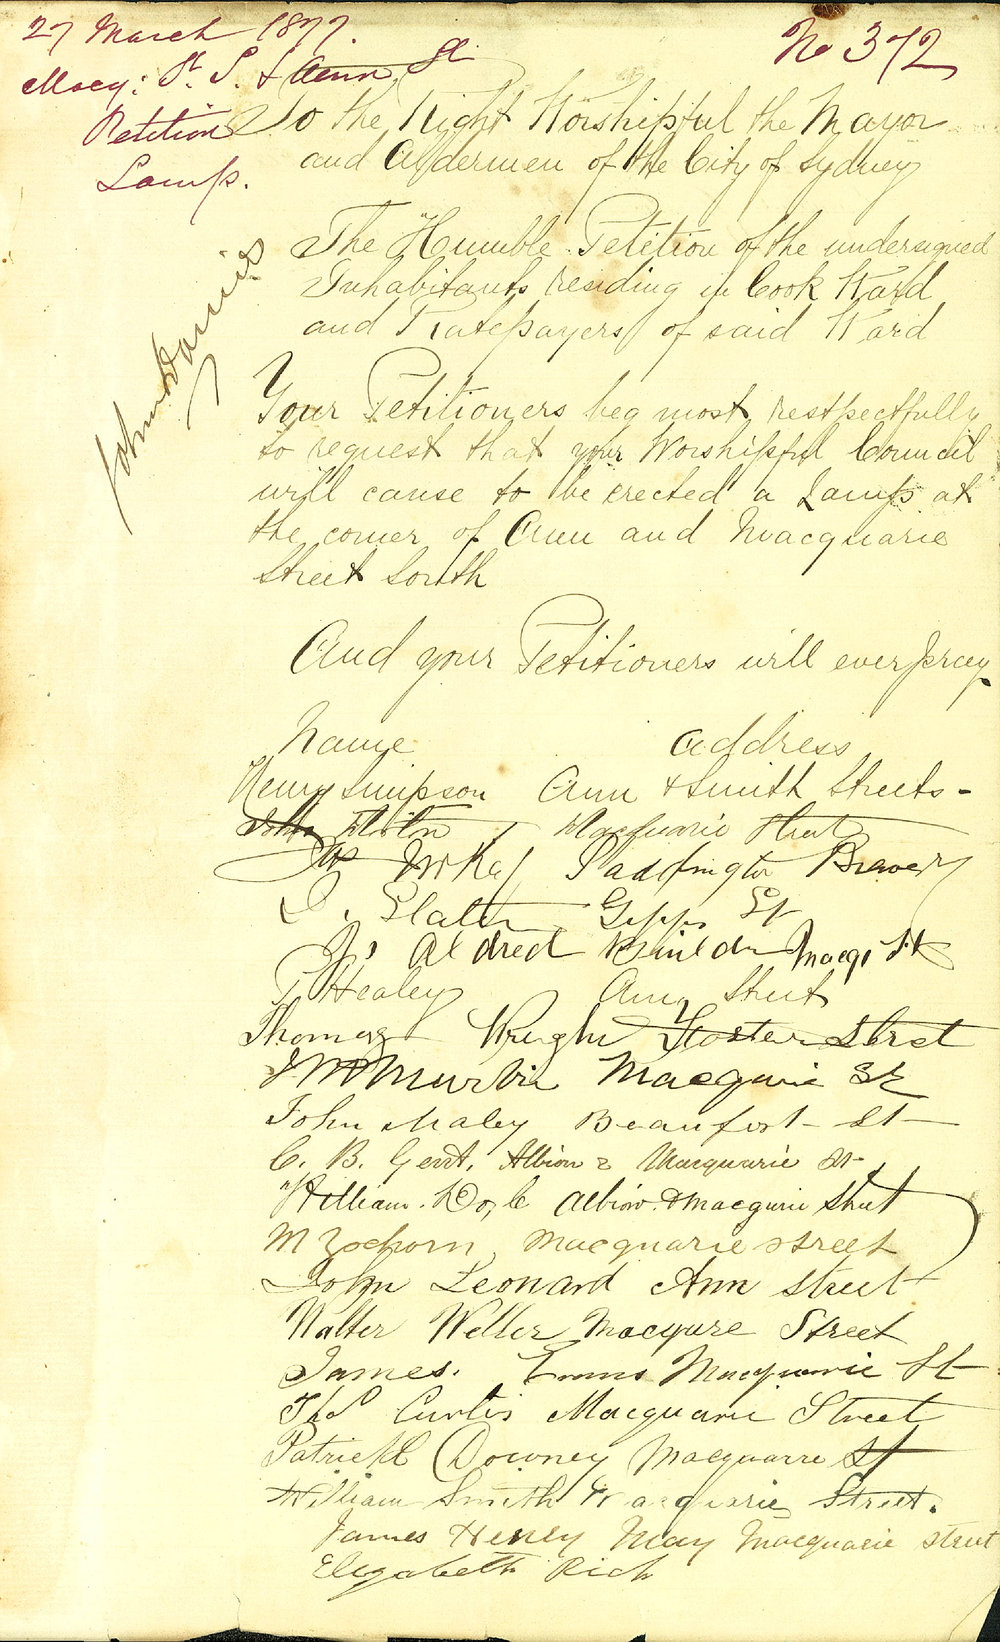 27 March 1877.
No 372
Macq: St. S. & Ann St
Petition
Lamp.
To the Right Worshipful the Mayor
and Aldermen of the City of Sydney
The Humble Petition of the undersigned
Inhabitants residing in Cook Ward
and Ratepayers of said Ward
John Davies
Your Petitioners beg most respectfully
to request that your Worshipful Council
will cause to be erected a Lamp at
the corner of Ann and Macquarie
Street South
And your Petitioners will ever pray.
Name address
Henry Simpson Ann & Smith Streets -
Macquarie Street
Jas McKay Paddington Brewery
Slater Gipps St
Aldred Builder Macq. St
T Healey Ann Street
Thomas Wright Foster Stret
Macquarie St
John Maley Beaufort St
C. B. Gent, Albion & Macquarie St
William Doyle Albion & Macquarie Street
M Zochorn, Macquarie street
John Leonard Ann street
Walter Weller Macqure Street
James. Macquarie St
Thos Curtis Macquarie Street
Patrick Downey Macquarre St
William Smith Macquarie Street.
James Henry May Macquarie street
Elizabeth Rich